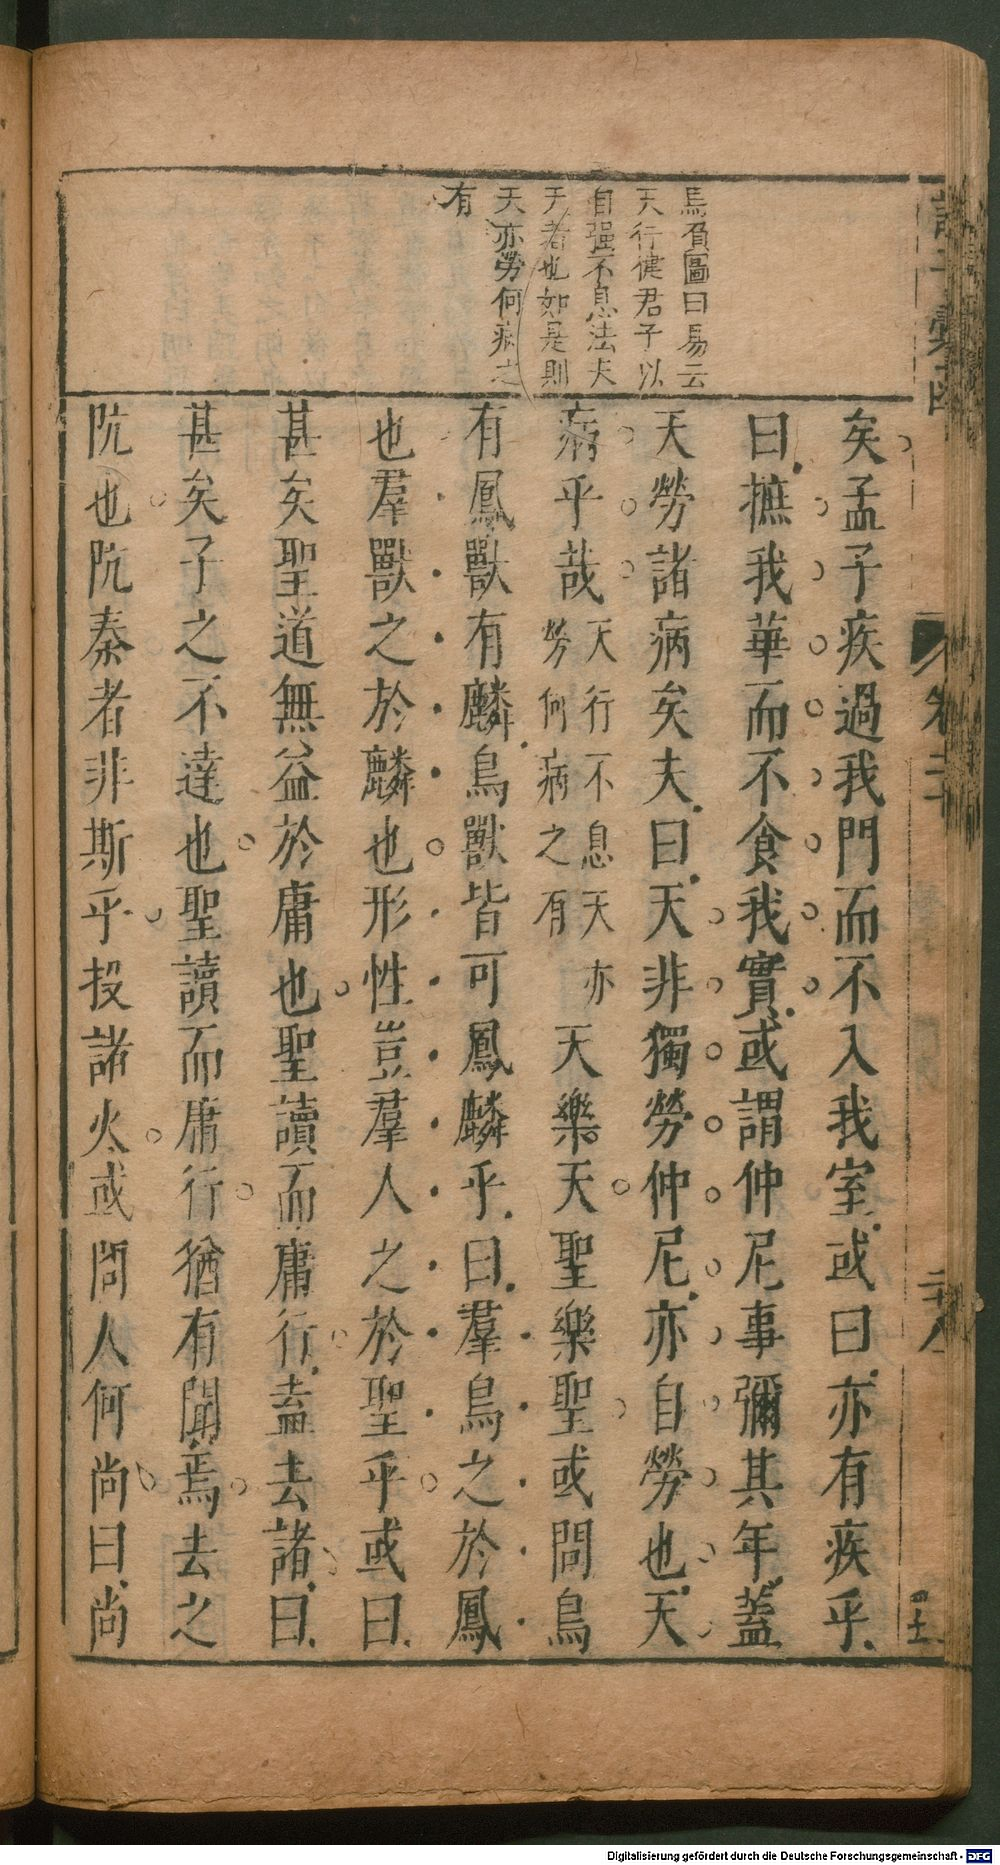 馬負圖曰易云
天行健君子以
自强不息法夫
天者也如是則
天亦勞何病之
有
矣孟子疾過我門而不入我室或曰亦有疾乎
曰摭我華而不食我實或謂仲尼事彌其年蓋
天勞諸病矣夫曰天非獨勞仲尼亦自勞也天
病乎哉天行不息天亦勞何病之有天樂天聖樂聖或問鳥
有鳳獸有麟鳥獸皆可鳳麟乎曰羣鳥之於鳳
也羣獸之於麟也形性豈羣人之於聖乎或曰
甚矣聖道無益於庸也聖讀而庸行盍去諸曰
甚矣子之不達也聖讀而庸行猶有聞焉去之
阬也阬秦者非斯乎投諸火或問人何尚曰尚
卷二十
二十八
Digitalisierung gefördert durch die Deutsche Forschungsgemeinschaft - DFG